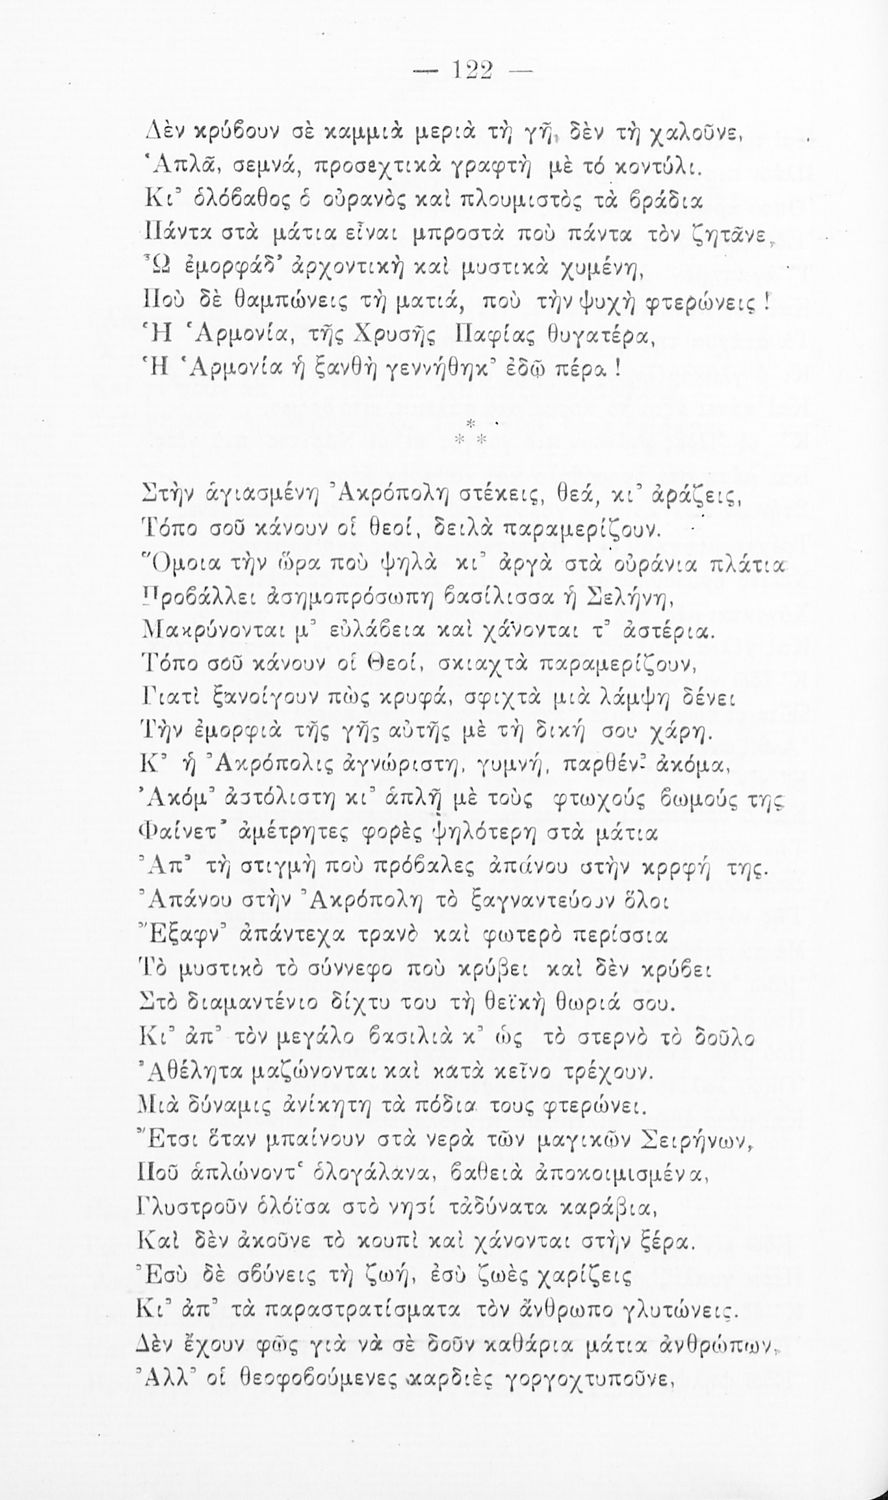 — 122 —
Δὲν κρύϐουν σὲ καμμιὰ μεριὰ τὴ γῆ, δὲν τὴ χαλοῦνε,
Ἁπλᾶ, σεμνά, προσεχτικὰ γραφτὴ μὲ τό κοντύλι.
Κι᾽ ὁλόϐαθος ὁ οὐρανὸς καὶ πλουμιστὸς τὰ ϐράδια
Πάντα στὰ μάτια εἶναι μπροστὰ ποὺ πάντα τὸν ζητᾶνε,
Ὦ ἐμορφάδ᾽ ἀρχοντικὴ καὶ μυστικὰ χυμένη,
Ποὺ δὲ θαμπώνεις τὴ ματιά, ποὺ τὴν ψυχὴ φτερώνεις !
Ἡ Ἁρμονία, τῆς Χρυσῆς Παφίας θυγατέρα,
Ἡ Ἁρμονία ἡ ξανθὴ γεννήθηκ᾽ ἐδῶ πέρα !
*
* *
Στὴν ἁγιασμένη Ἀκρόπολη στέκεις, θεά, κι᾽ ἀράζεις,
Τόπο σοῦ κάνουν οἱ θεοί, δειλὰ παραμερίζουν.
Ὅμοια τὴν ὥρα ποὺ ψηλὰ κι᾽ ἀργὰ στὰ οὐράνια πλάτια
Προϐάλλει ἀσημοπρόσωπη ϐασίλισσα ἡ Σελήνη,
Μακρύνονται μ᾽ εὐλάϐεια καὶ χάνονται τ᾽ ἀστέρια.
Τόπο σοῦ κάνουν οἱ Θεοί, σκιαχτὰ παραμερίζουν,
Γιατὶ ξανοίγουν πὼς κρυφά, σφιχτὰ μιὰ λάμψη δένει
Τὴν ἐμορφιὰ τῆς γῆς αὐτῆς μὲ τὴ δική σου χάρη.
Κ᾽ ἡ Ἀκρόπολις ἀγνώριστη, γυμνή, παρθέν᾽ ἀκόμα,
Ἀκόμ᾽ ἀστόλιστη κι᾽ ἁπλῆ μὲ τοὺς φτωχούς ϐωμούς της
Φαίνετ᾽ ἀμέτρητες φορὲς ψηλότερη στὰ μάτια
Ἀπ᾽ τὴ στιγμὴ ποὺ πρόϐαλες ἀπάνου στὴν κρρφή της.
Ἀπάνου στὴν Ἀκρόπολη τὸ ξαγναντεύουν ὅλοι
Ἔξαφν᾽ ἀπάντεχα τρανὸ καὶ φωτερὸ περίσσια
Τὸ μυστικὸ τὸ σύννεφο ποὺ κρύβει καὶ δὲν κρύϐει
Στὸ διαμαντένιο δίχτυ του τὴ θεϊκὴ θωριά σου.
Κι᾽ ἀπ᾽ τὸν μεγάλο ϐασιλιὰ κ᾽ ὡς τὸ στερνὸ τὸ δοῦλο
Ἀθέλητα μαζώνονται καὶ κατὰ κεῖνο τρέχουν.
Μιὰ δύναμις ἀνίκητη τὰ πόδια τους φτερώνει.
Ἔτσι ὅταν μπαίνουν στὰ νερὰ τῶν μαγικῶν Σειρήνων,
Ποῦ ἁπλώνοντ᾽ ὁλογάλανα, ϐαθειὰ ἀποκοιμισμένα,
Γλυστροῦν ὁλόϊσα στὸ νησί τἀδύνατα καράβια,
Καὶ δὲν ἀκοῦνε τὸ κουπὶ καὶ χάνονται στὴν ξέρα.
Ἐσὺ δὲ σϐύνεις τὴ ζωή, ἐσὺ ζωὲς χαρίζεις
Κι᾽ ἀπ᾽ τὰ παραστρατίσματα τὸν ἄνθρωπο γλυτώνεις.
Δὲν ἔχουν φῶς γιὰ νὰ σὲ δοῦν καθάρια μάτια ἀνθρώπων,
Ἀλλ᾽ οἱ θεοφοϐούμενες καρδιὲς γοργοχτυποῦνε,